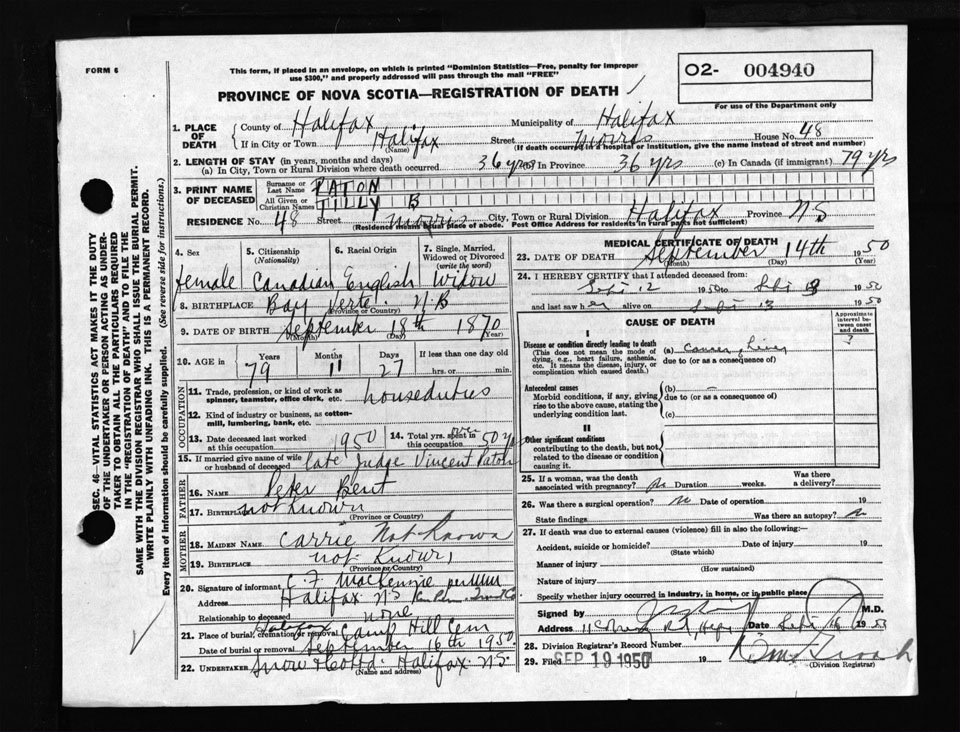 FORM 6
This form, if placed in an envelope, on which is printed "Dominion Statistics—Free, penalty for improper
use $300," and properly addressed will pass through the mail "FREE"
PROVINCE OF NOVA SCOTIA—REGISTRATION OF DEATH
O2- 004940
For use of the Department only
SEC. 46—VITAL STATISTICS ACT MAKES IT THE DUTY
OF THE UNDERTAKER OR PERSON ACTING AS UNDER-
TAKER TO OBTAIN ALL THE PARTICULARS REQUIRED
IN THE "REGISTRATION OF DEATH" AND TO FILE THE
SAME WITH THE DIVISION REGISTRAR WHO SHALL ISSUE THE BURIAL PERMIT.
WRITE PLAINLY WITH UNFADING INK. THIS IS A PERMANENT RECORD.
Every item of information should be carefully supplied. (See reverse side for instructions.)
1. PLACE OF DEATH
County of Halifax Municipality of Halifax
If in City or Town Halifax Street Morris House No. 48
(Name) (If death occurred in a hospital or institution, give the name instead of street and number)
2. LENGTH OF STAY (in years, months and days)
(a) In City, Town or Rural Division where death occurred 36 yrs (b) In Province 36 yrs (c) In Canada (if immigrant) 79 yrs
3. PRINT NAME OF DECEASED
Surname or Last Name PATON
All Given or Christian Names TILLY B
RESIDENCE No. 48 Street Morris City, Town or Rural Division Halifax Province NS
(Residence means usual place of abode. Post Office Address for residents in rural parts not sufficient)
4. Sex female
5. Citizenship (Nationality) Canadian
6. Racial Origin English
7. Single, Married, Widowed or Divorced (write the word) Widow
8. BIRTHPLACE Bay Verte N.B
(Province or Country)
9. DATE OF BIRTH September 18th 1870
(Month) (Day) (Year)
10. AGE in Years Months Days If less than one day old
79 11 27 hrs. or min.
OCCUPATION
11. Trade, profession, or kind of work as spinner, teamster, office clerk, etc. houseduties
12. Kind of industry or business, as cotton-mill, lumbering, bank, etc.
13. Date deceased last worked at this occupation 1950
14. Total yrs. spent in this occupation over 50 yrs
15. If married give name of wife or husband of deceased late Judge Vincent Paton
FATHER
16. Name Peter Bent
17. Birthplace not known
(Province or Country)
MOTHER
18. MAIDEN NAME Carrie Not Known
19. BIRTHPLACE not known
(Province or Country)
20. Signature of informant C. F. MacKenzie per
Address Halifax N.S
Relationship to deceased none
21. Place of burial, cremation or removal Halifax Camp Hill Cem
Date of burial or removal September 16th 1950
22. UNDERTAKER Snow & Co Ltd. Halifax N.S.
(Name and address)
MEDICAL CERTIFICATE OF DEATH
23. DATE OF DEATH September 14th 1950
(Month) (Day) (Year)
24. I HEREBY CERTIFY that I attended deceased from:
Sept 12 1950 to Sept 13 1950
and last saw her alive on Sept 13 1950
CAUSE OF DEATH
Approximate interval between onset and death
I
Disease or condition directly leading to death
(This does not mean the mode of dying, e.g., heart failure, asthenia, etc. It means the disease, injury, or complication which caused death.)
(a) Cancer of Liver ?
due to (or as a consequence of)
Antecedent causes
Morbid conditions, if any, giving rise to the above cause, stating the underlying condition last.
(b) —
due to (or as a consequence of)
(c)
II
Other significant conditions
contributing to the death, but not related to the disease or condition causing it.
25. If a woman, was the death associated with pregnancy? no Duration weeks. Was there a delivery?
26. Was there a surgical operation? no Date of operation 19
State findings Was there an autopsy? no
27. If death was due to external causes (violence) fill in also the following:—
Accident, suicide or homicide? Date of injury 19
(State which)
Manner of injury
(How sustained)
Nature of injury
Specify whether injury occurred in industry, in home, or in public place
Signed by M.D.
Address Date Sept 16 1950
28. Division Registrar's Record Number
29. Filed SEP 19 1950 19
(Division Registrar)